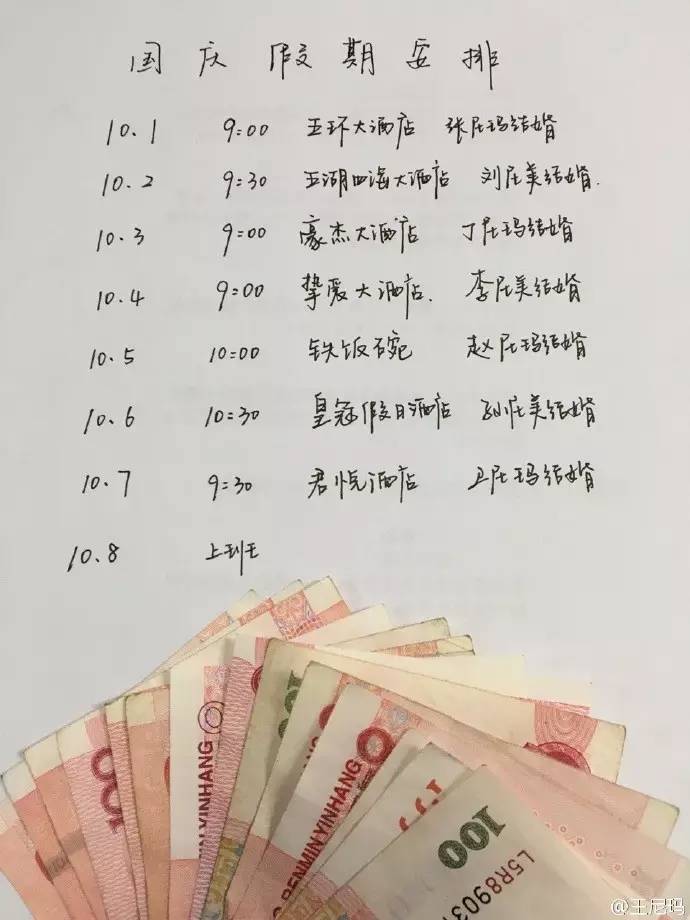 国庆假期安排
10.1 9:00 五环大酒店 张尼玛结婚
10.2 9:30 五湖四海大酒店 刘尼美结婚.
10.3 9:00 豪杰大酒店 丁尼玛结婚
10.4 9:00 挚爱大酒店. 李尼美结婚
10.5 10:00 铁饭碗 赵尼玛结婚
10.6 10:30 皇冠假日酒店 孙尼美结婚
10.7 9:30 君悦酒店 卫尼玛结婚
10.8 上班
YINHANG
RENMINYINHANG
100
100
L5R8903
@王尼玛